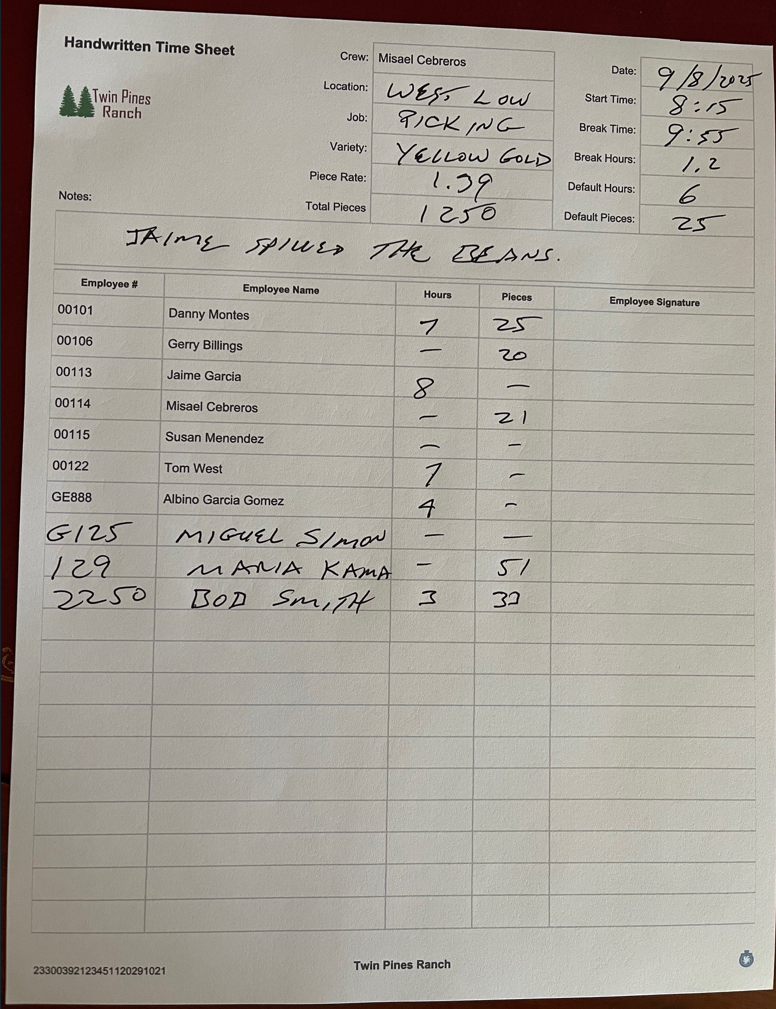 Handwritten Time Sheet
Twin Pines
Ranch
Crew: Misael Cebreros
Location: WEST LOW
Job: PICKING
Variety: YELLOW GOLD
Piece Rate: 1.39
Total Pieces 1250
Date: 9/8/2025
Start Time: 8:15
Break Time: 9:55
Break Hours: 1.2
Default Hours: 6
Default Pieces: 25
Notes:
JAIME SPILLED THE BEANS.
Employee # Employee Name Hours Pieces Employee Signature
00101 Danny Montes 7 25
00106 Gerry Billings — 20
00113 Jaime Garcia 8 —
00114 Misael Cebreros – 21
00115 Susan Menendez – -
00122 Tom West 7 -
GE888 Albino Garcia Gomez 4 -
G125 MIGUEL SIMON — —
129 MARIA KAMA - 51
2250 BOB SMITH 3
23300392123451120291021
Twin Pines Ranch